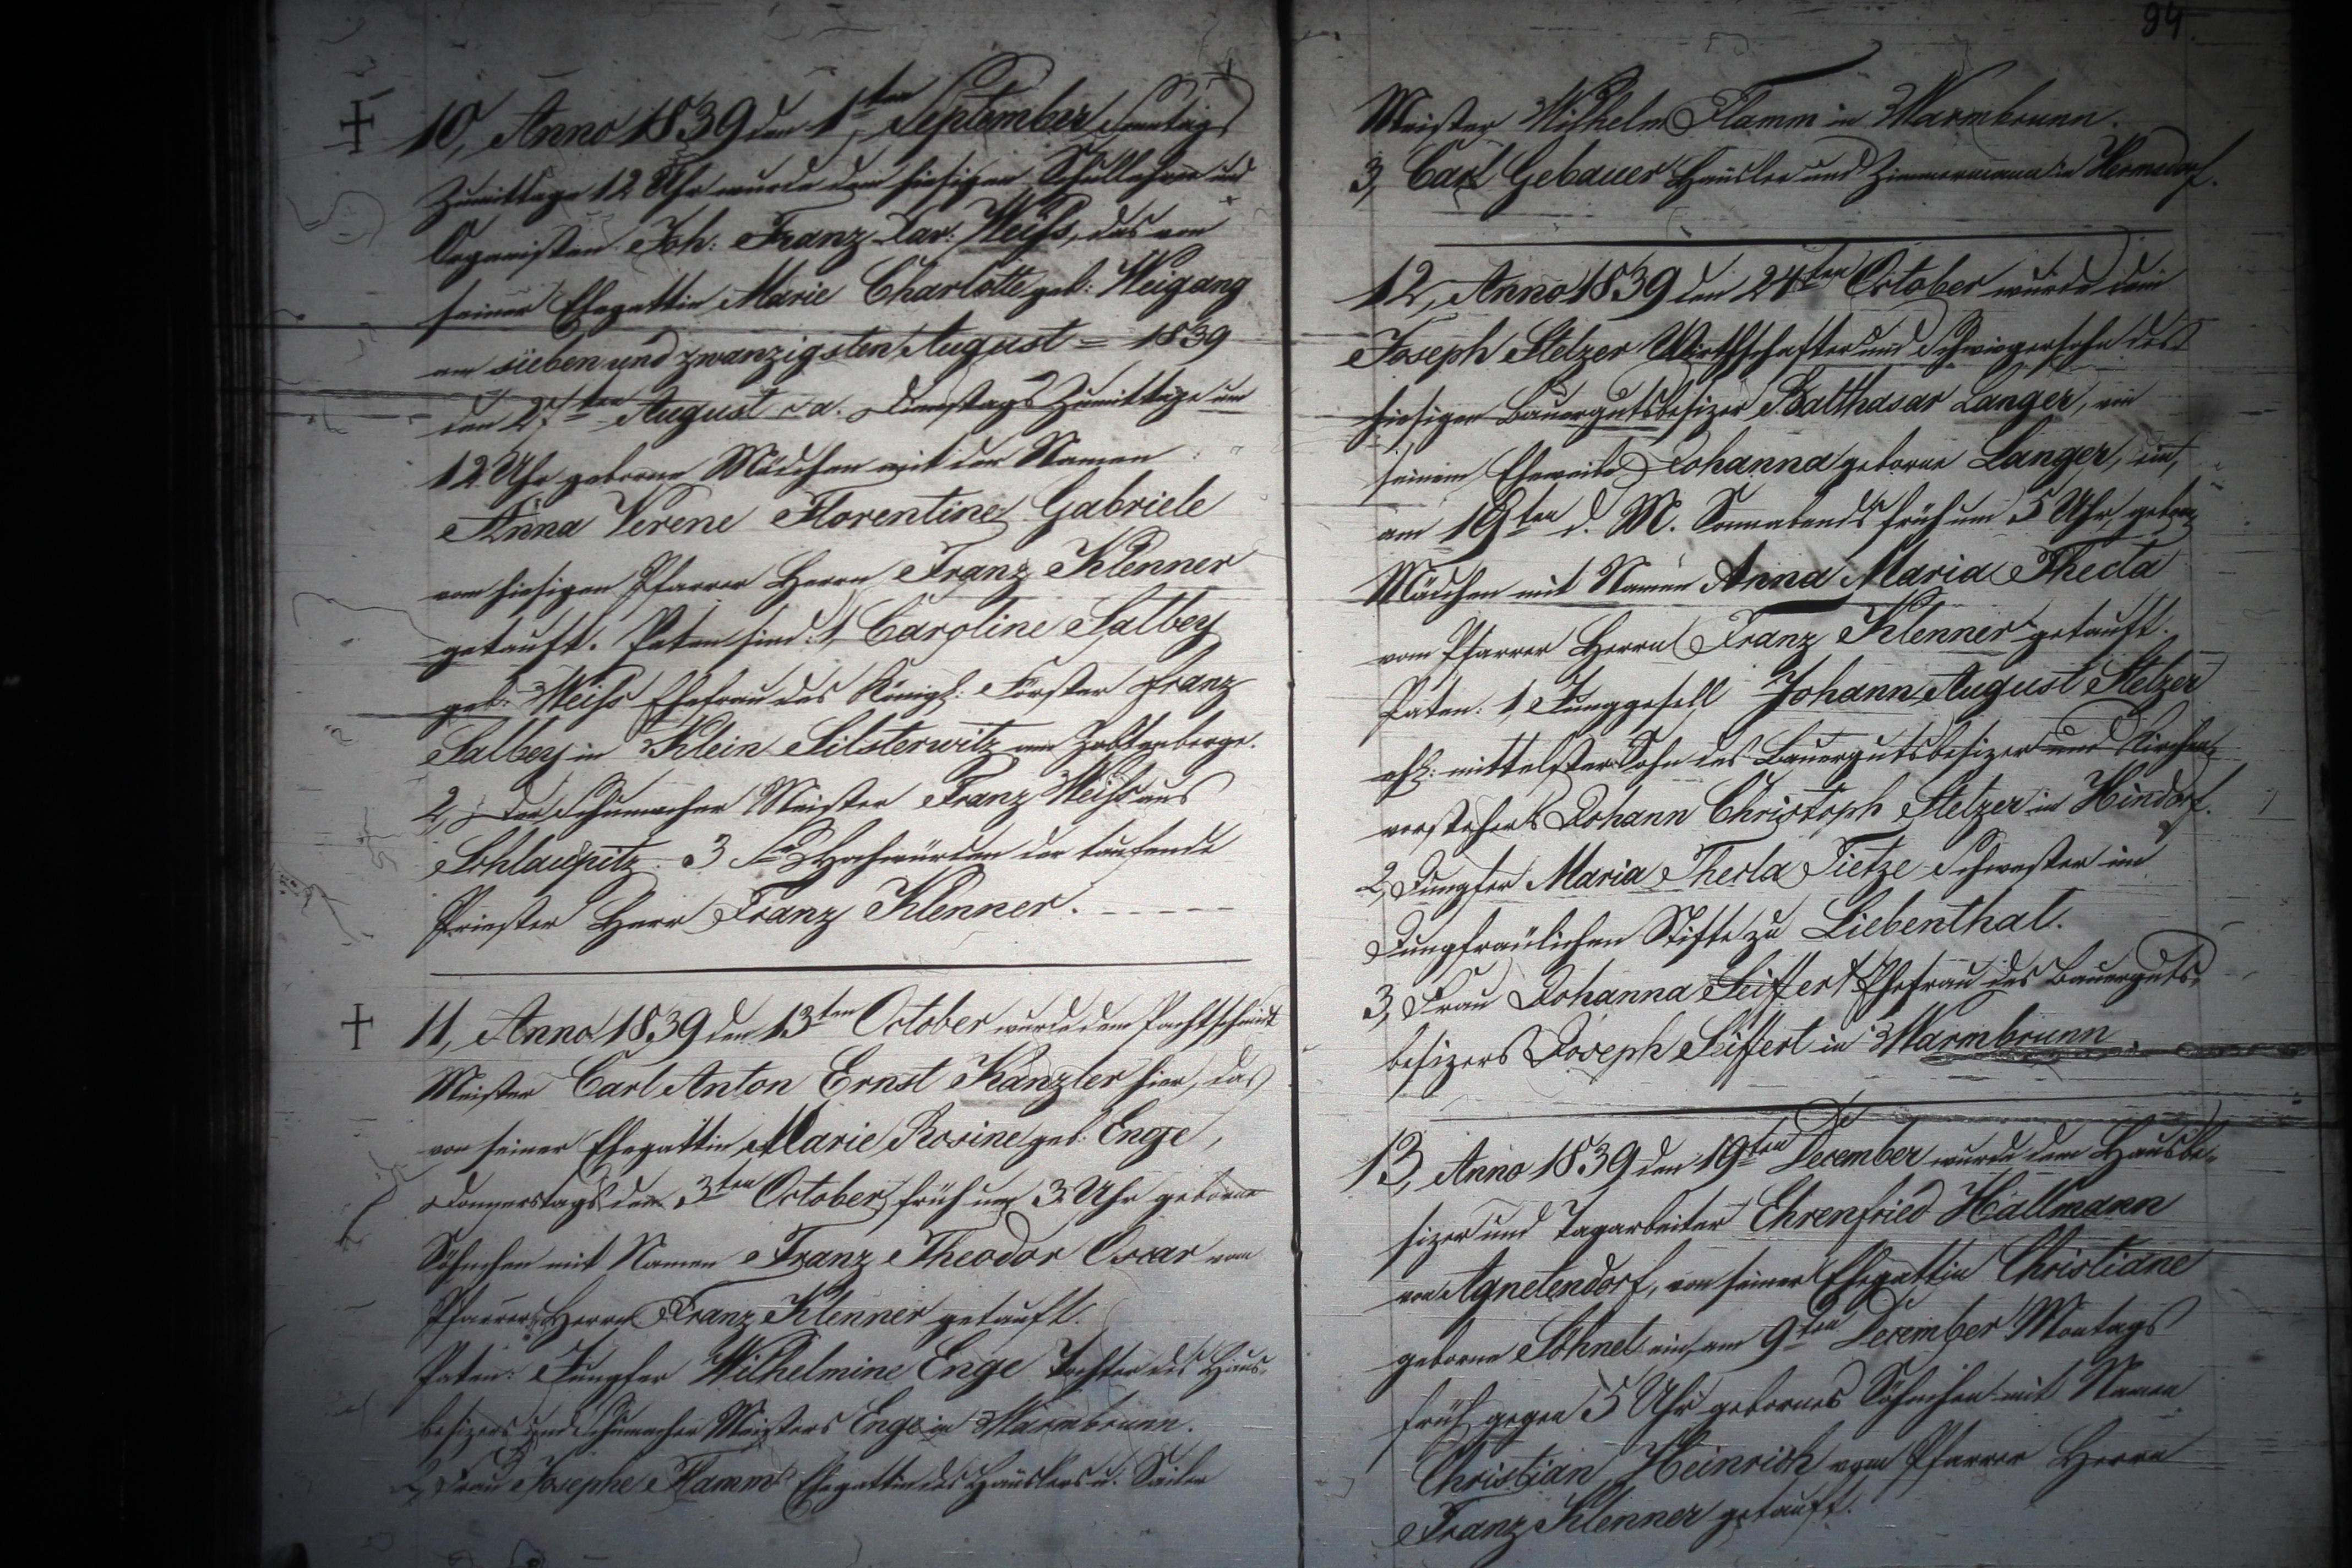 10, Anno 1839 den 1ten September Sonntags
Zumittage 12 Uhr wurde dem hiesigen Schullehrer und
Organisten Joh: Franz Xav: Weiß, das von
seiner Ehegattin Marie Charlotte geb: Weigang
am sieben und zwanzigsten August = 1839
den 27ten August d. a. Dienstags Zumittage um
12 Uhr geborne Mädchen mit den Namen
Anna Verene Florentine Gabriele
vom hiesigen Pfarrer Herrn Franz Klenner
getauft. Paten sind: 1, Caroline Salbey
geb: Weiß Ehefrau des Königl: Förster Franz
Salbey in Klein Silsterwitz am Zobtenberge.
2, Der Schumacher Meister Franz Weiß aus
Schlaupitz. 3 Hochwürden der taufende
Priester Herr Franz Klenner.
11, Anno 1839 den 13ten October wurde dem Pachtschmidt
Meister Carl Anton Ernst Kanzler hier, das
von seiner Ehegattin Marie Rosine geb: Enge,
Donnerstags den 3ten October früh um 3 Uhr geborne
Söhnchen mit Namen Franz Theodor Oscar vom
Pfarrer Herrn Franz Klenner getauft.
Paten: Jungfer Wilhelmine Enge Tochter des Haus-
besizers und Schumacher Meisters Enge in Warmbrunn.
2, Frau Josephe Flamm Ehegattin des Häuslers u. Seiler
94.
Meister Wilhelm Flamm in Warmbrunn.
3, Carl Gebauer Häusler und Zimmermann in Hermsdorf.
12, Anno 1839 den 24ten October wurde dem
Joseph Stelzer Wirthschafter und Schwiegersohn des
hiesigen Bauergutsbesizer Balthasar Langer, von
seinem Eheweibe Johanna geborne Langer, ein,
am 19ten d. M. Sonnabends früh um 5 Uhr, gebor
Mädchen mit Namen Anna Maria Thecla
vom Pfarrer Herrn Franz Klenner getauft.
Paten: 1, Junggesell Johann August Stelzer
ehl: mittelster Sohn des Bauergutsbesizer und Kirchen-
vorstehers Johann Christoph Stelzer in Hindorf.
2, Jungfer Maria Thecla Tietze Schwester im
Jungfräulichen Stifte zu Liebenthal.
3, Frau Johanna Seiffert Ehefrau des Bauerguts-
besizers Joseph Seiffert in Warmbrunn
13, Anno 1839 den 19ten December wurde dem Hausbe-
sizer und Tagarbeiter Ehrenfried Hallmann
von Agnetendorf, von seiner Ehegattin Christiane
geborne Söhnel ein, am 9ten December Montags
früh gegen 5 Uhr gebornes Söhnchen mit Namen
Christian Heinrich vom Pfarrer Herrn
Franz Klenner getauft.